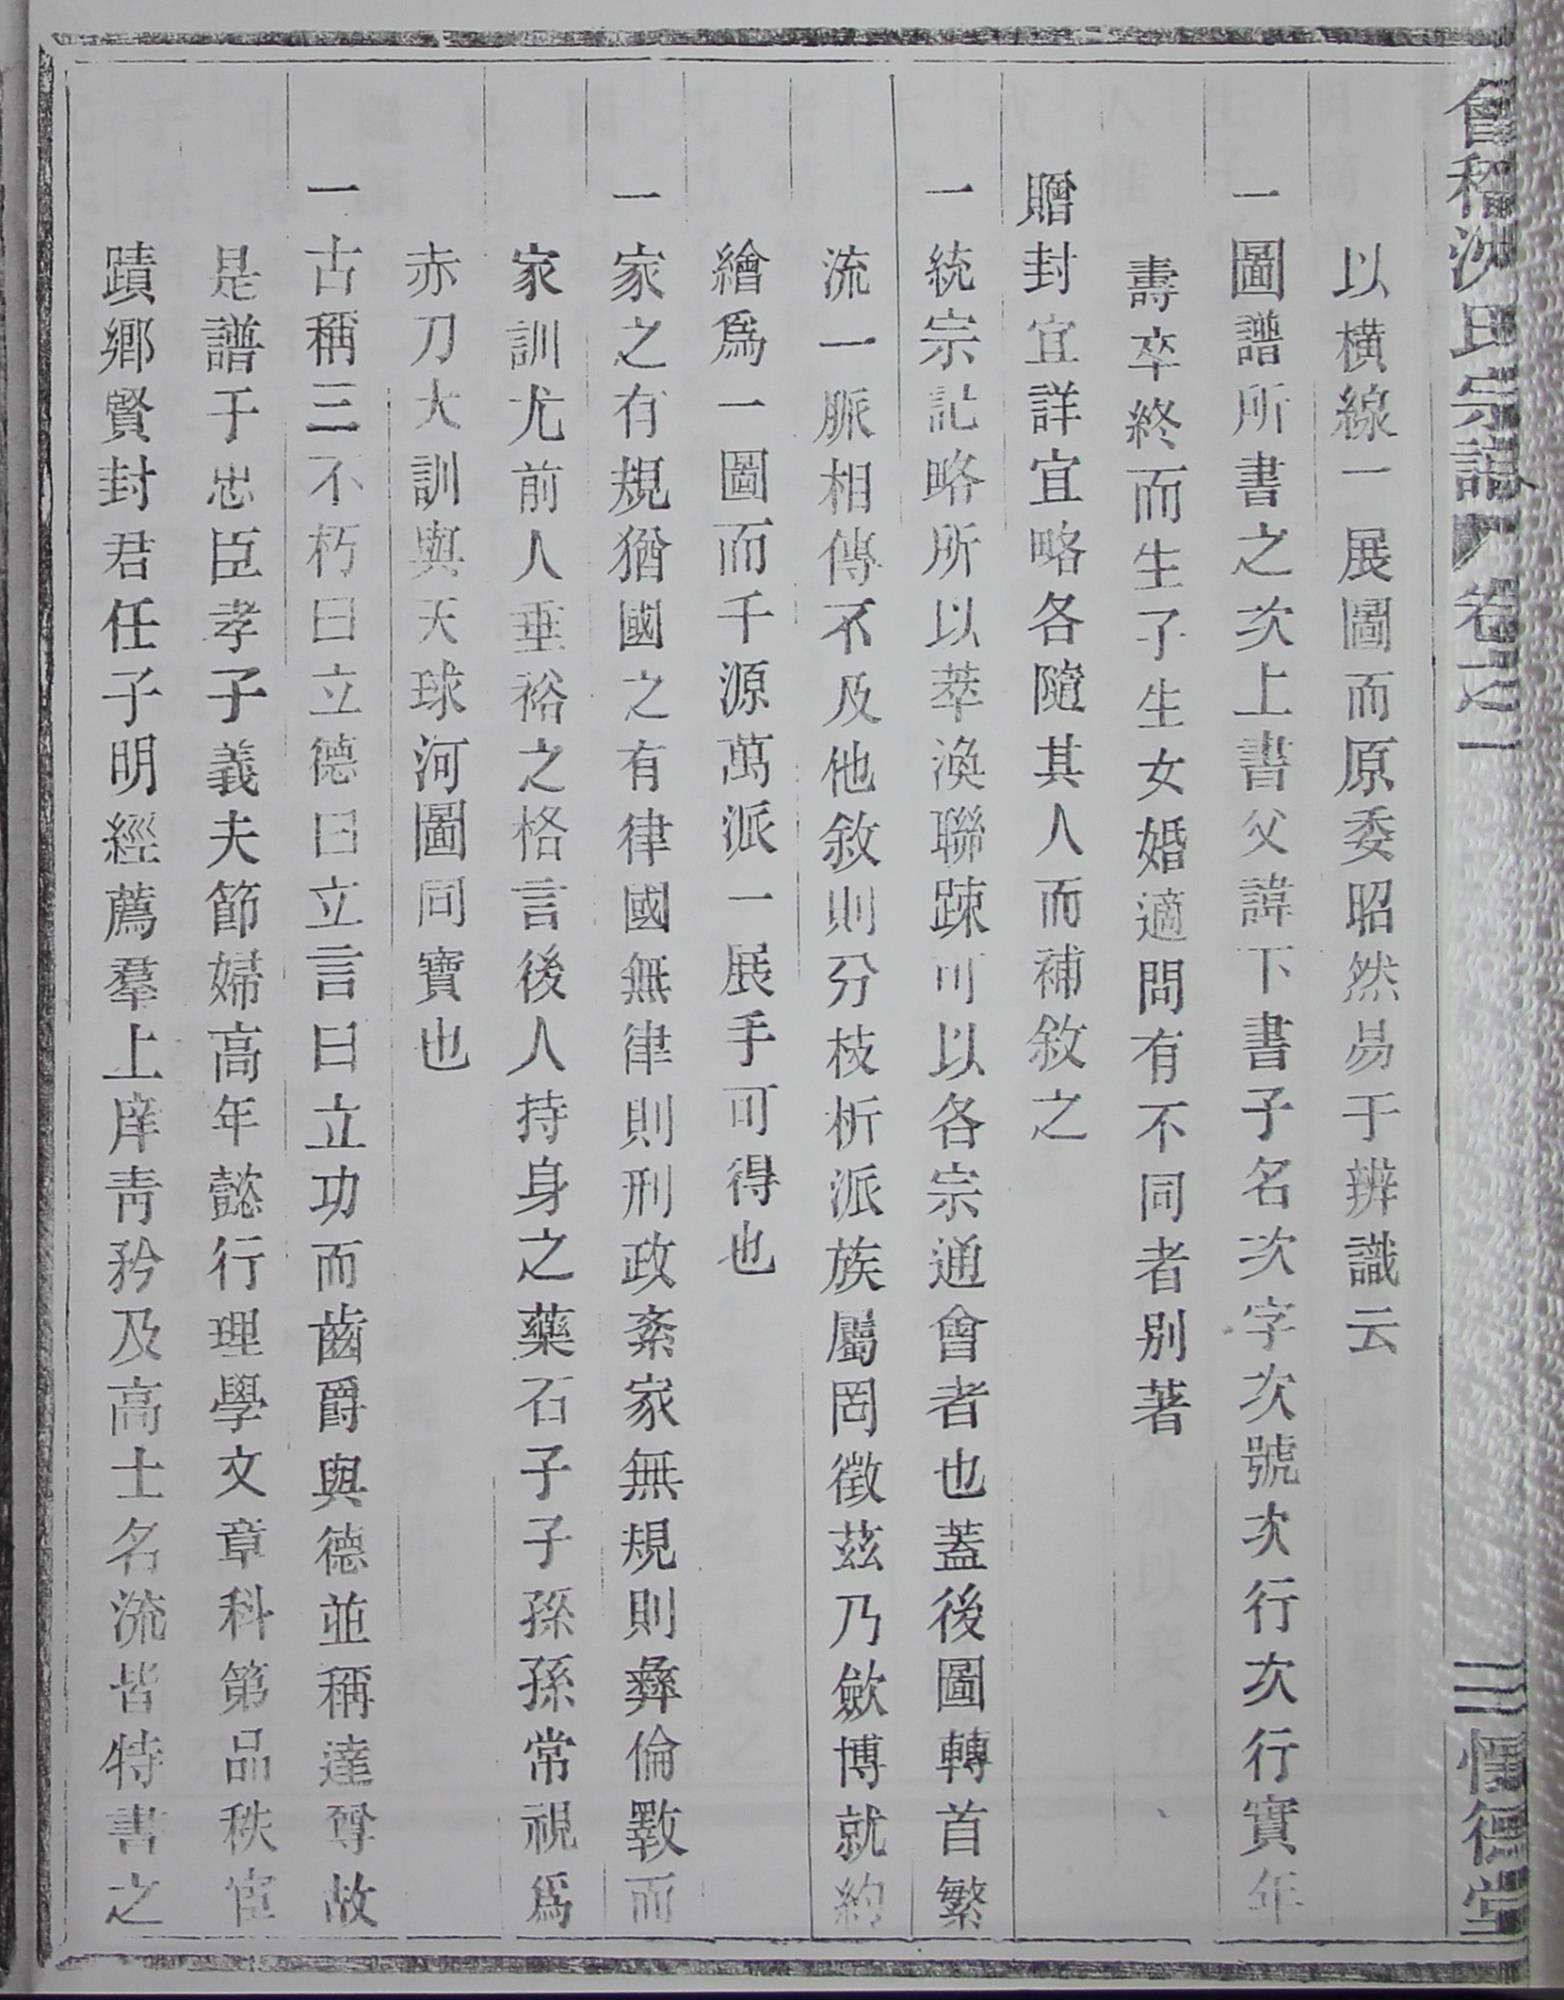 會稽沈氏宗譜 卷之一 三 德堂
以橫線一展圖而原委昭然易于辨識云
一圖譜所書之次上書父諱下書子名次字次號次行次行實年
壽卒終而生子生女婚適問有不同者別著
贈封宜詳宜略各隨其人而補敘之
一統宗記略所以萃渙聯踈可以各宗通會者也蓋後圖轉首繁
流一脈相傳不及他敘則分枝析派族屬罔徵茲乃歛博就約
繪爲一圖而千源萬派一展手可得也
一家之有規猶國之有律國無律則刑政紊家無規則彝倫斁而
家訓尤前人垂裕之格言後人持身之藥石子子孫孫常視爲
赤刀大訓與天球河圖同寶也
一古稱三不朽曰立德曰立言曰立功而齒爵與德並稱達尊故
是譜于忠臣孝子義夫節婦高年懿行理學文章科第品秩宦
蹟鄉賢封君任子明經薦羣上庠靑矜及高士名流皆特書之